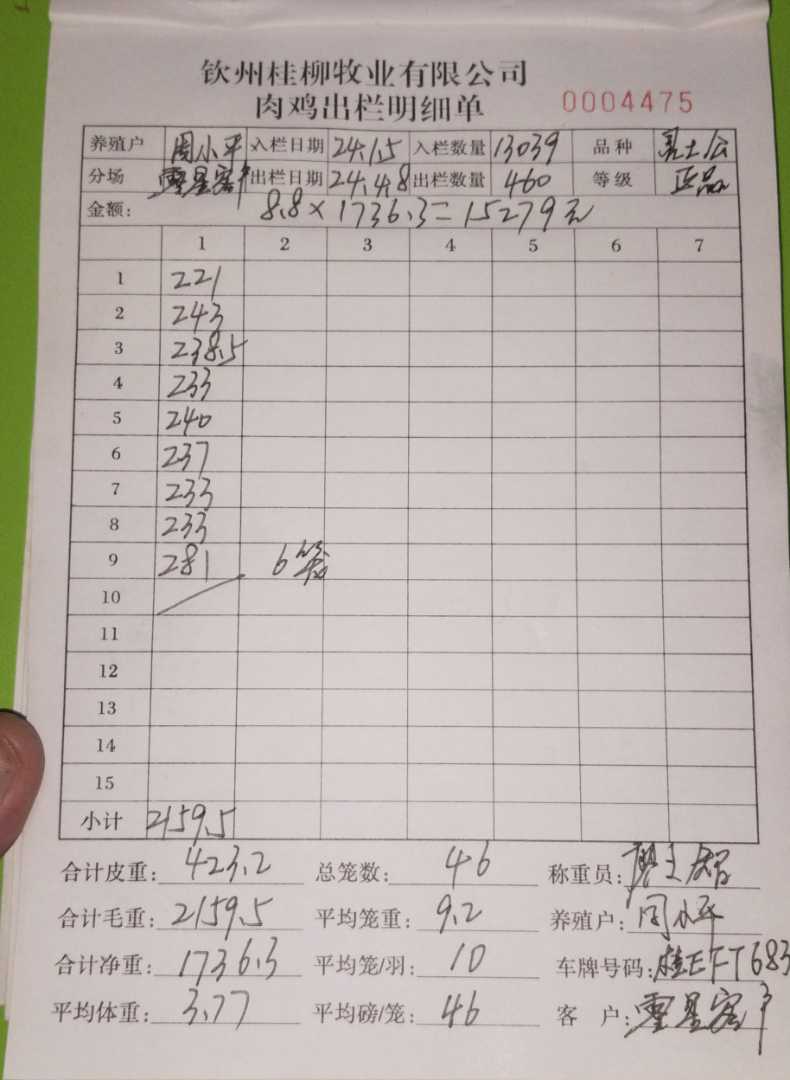 钦州桂柳牧业有限公司
肉鸡出栏明细单 0004475
养殖户 周小平 入栏日期 24.1.5 入栏数量 13039 品种 土公
分场 零星客户 出栏日期 24.4.8 出栏数量 460 等级 正品
金额: 8.8×1736.3=15279元
1 2 3 4 5 6 7
1 221
2 243
3 238.5
4 233
5 240
6 237
7 233
8 233
9 281 6笼
10
11
12
13
14
15
小计 2159.5
合计皮重: 423.2 总笼数: 46 称重员:
合计毛重: 2159.5 平均笼重: 9.2 养殖户: 周小平
合计净重: 1736.3 平均笼/羽: 10 车牌号码: 桂EFT683
平均体重: 3.77 平均磅/笼: 46 客户: 零星客户